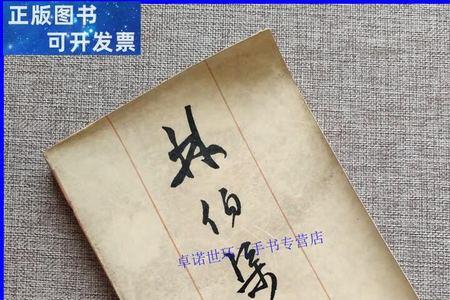 正版图书
可开发票
林伯渠
卓诺世环二手书专营店